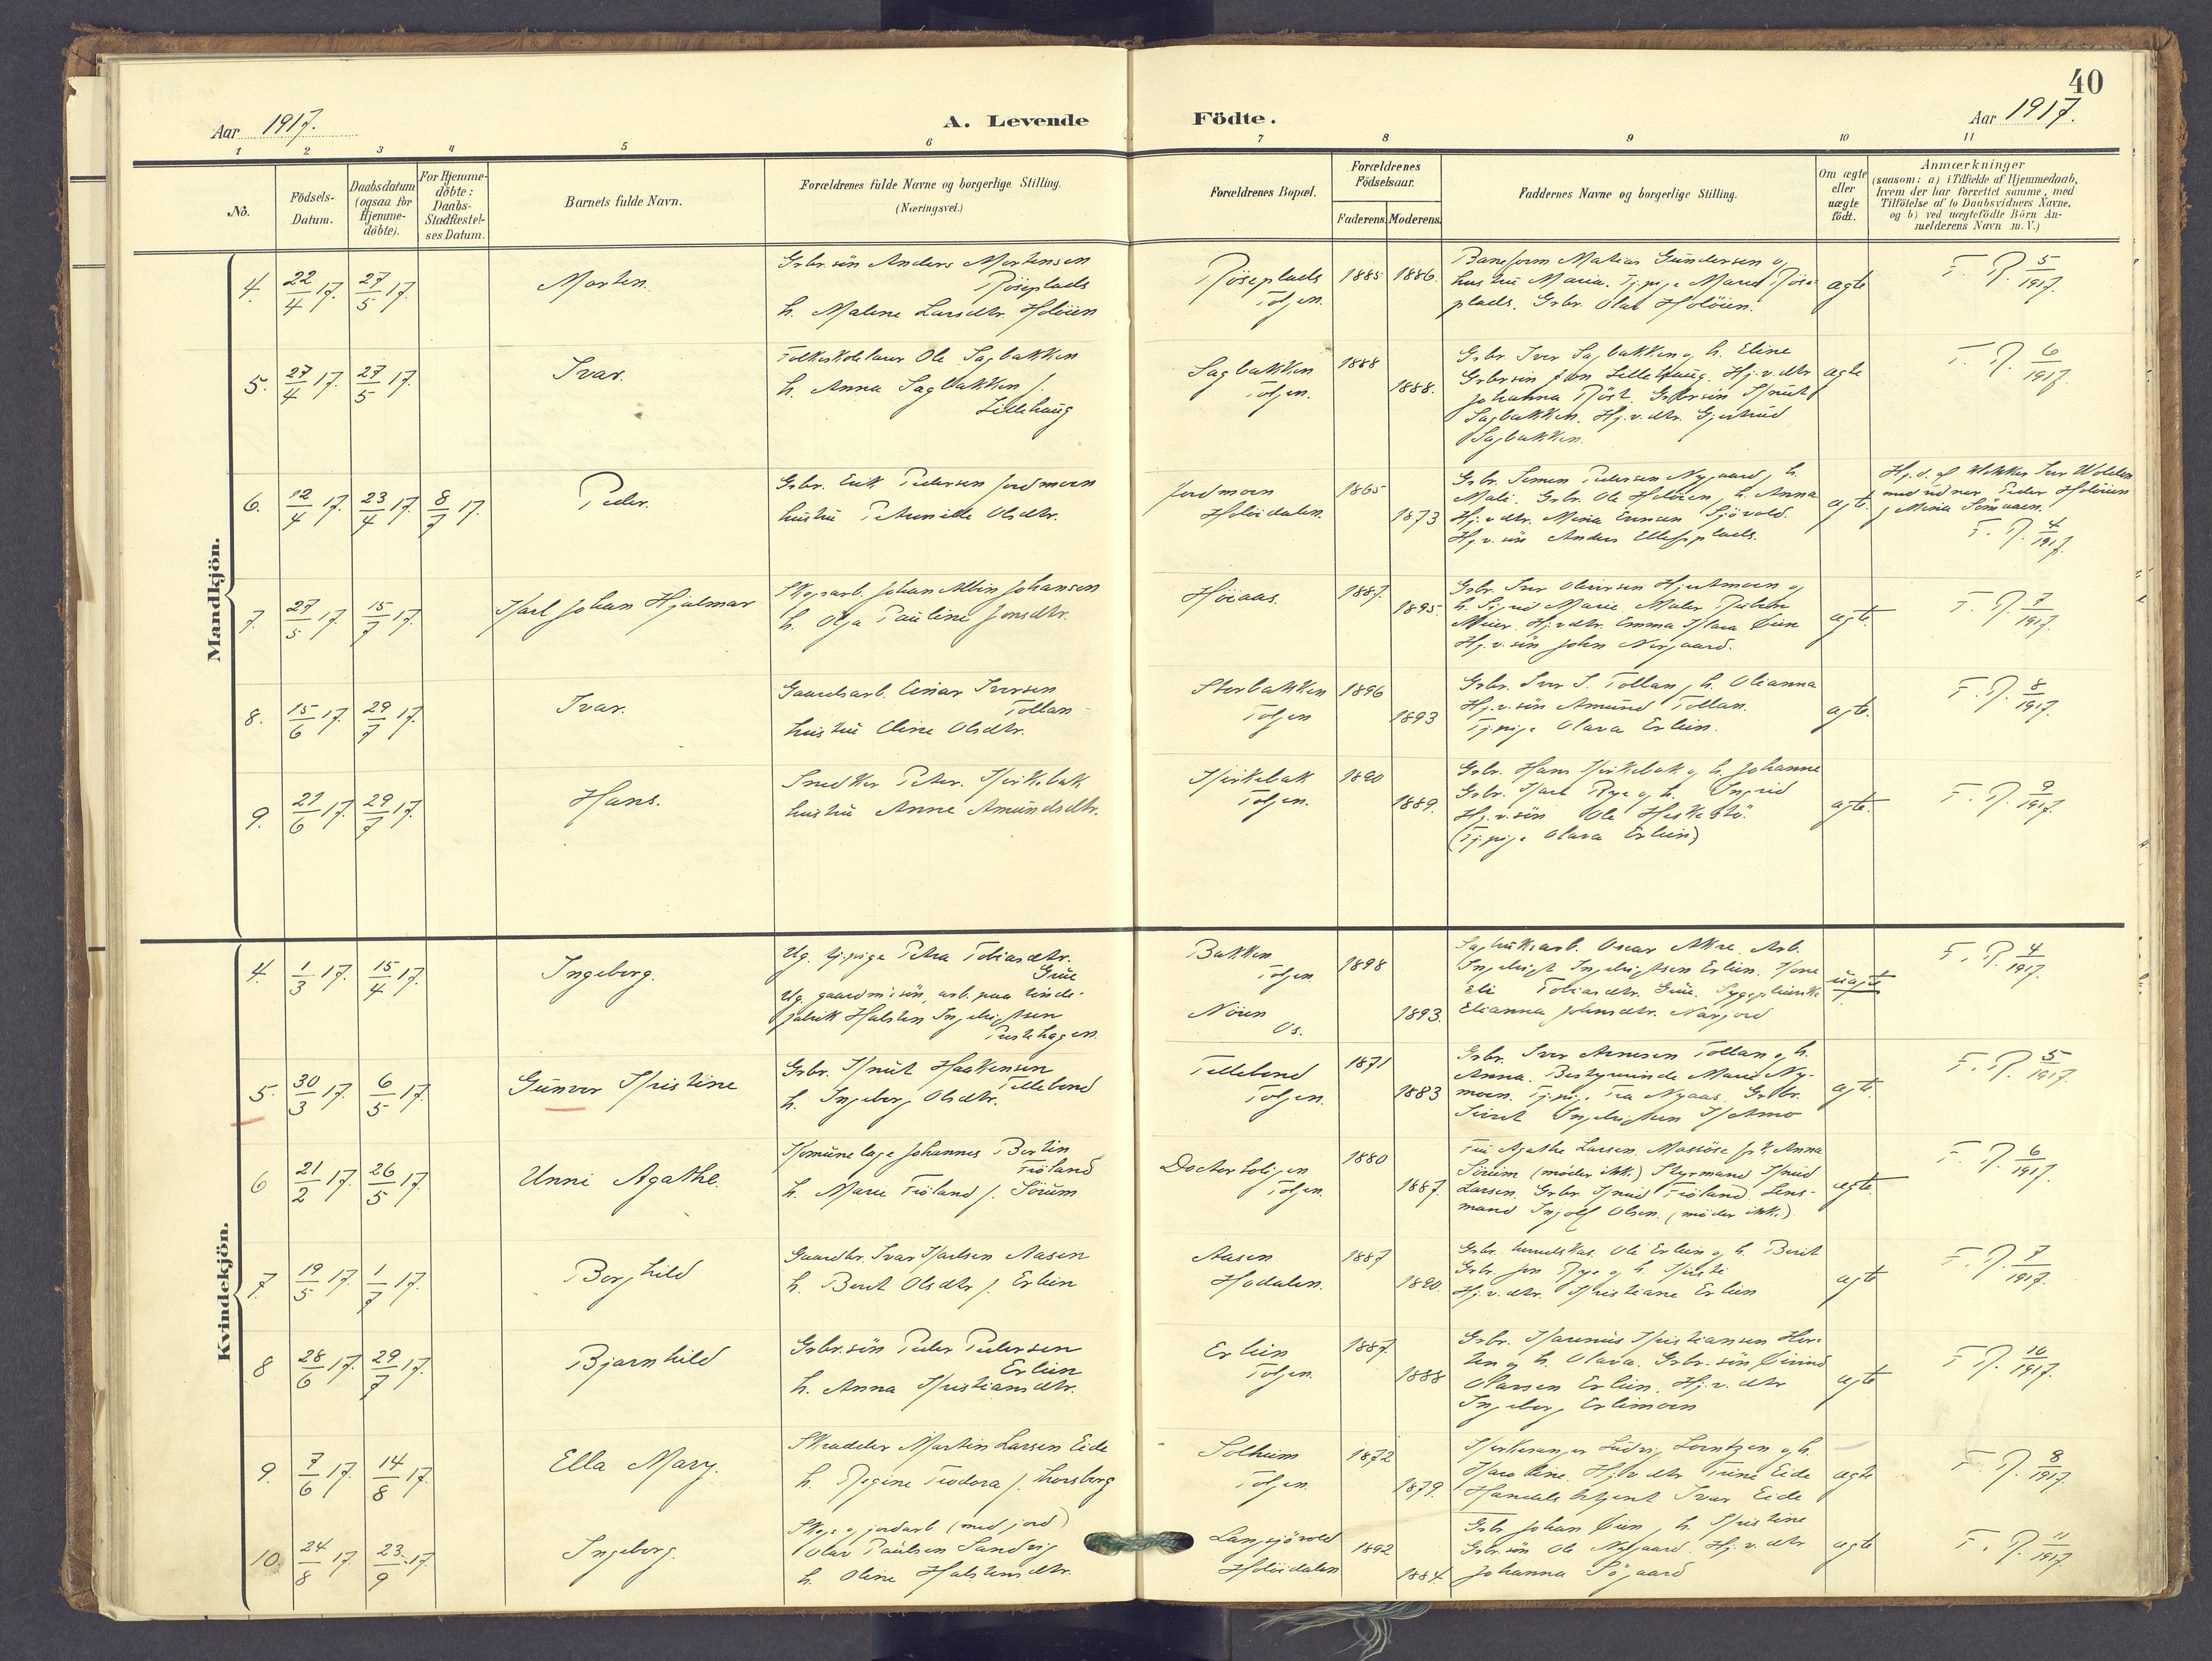 40
Aar 1917.
A. Levende Födte.
Aar 1917.
1 2 3 4 5 6 7 8 9 10 11
No.
Födsels-
Datum.
Daabsdatum
(ogsaa for
Hjemme-
döbte).
For Hjemme-
döbte:
Daabs-
Stadfæstel-
ses Datum.
Barnets fulde Navn.
Forældrenes fulde Navne og borgerlige Stilling.
(Næringsvei.)
Forældrenes Bopæl.
Forældrenes
Födselsaar.
Faderens. Moderens.
Faddernes Navne og borgerlige Stilling.
Om ægte
eller
uægte
födt.
Anmærkninger
(saasom: a) i Tilfælde af Hjemmedaab,
hvem der har forrettet samme, med
Tilföielse af to Daabsvidners Navne,
og b) ved uægtefödte Börn An-
melderens Navn m. V.)
Mandkjön.
4. 22/4 17. 27/5 17.
Morten.
Grbr.sön Anders Mortensen
Röseplads
h. Malene Larsdtr. Holöien
Röseplads
Tolgen.
1885 1886.
Baneform Matias Gundersen og
hustru Maria. Tj.pige Marie Röse-
plads. Grbr. Olaf Holöien.
ægte
F. R. 5/1917.
5. 27/4 17. 27/5 17.
Ivar.
Folkeskolelærer Ole Sagbakken
h. Anna Sagbakken f.
Lillehaug
Sagbakken
Tolgen.
1888
1888.
Grbr Iver Sagbakken og h. Eline
Grbrsön Jon Lillehaug. Hj.v.dtr
Johanna Röst. Grbrsön Knut
Sagbakken. Hj.v.dtr. Gjertrud
Sagbakken.
ægte
F. R. 6/1917.
6. 12/4 17. 23/4 17. 8/7 17.
Peder.
Grbr. Erik Pedersen Jordmoen
hustru Petronille Olsdtr.
Jordmoen
Holöidalen.
1865
1873
Grbr. Simen Pedersen Nygaard, h.
Mali. Grbr. Ole Holöien, h. Anna
Hj.v.dtr. Maria Sjövold.
Hj.v.sön Anders
ægte.
Hj.d. af Klokker Iver Wolden
med vidner Peder Holöien
F. R. 4/1917.
7. 27/5 17. 15/7 17.
Karl Johan Hjalmar
Skogsarb. Johan Albin Johansen
h. Olga Pauline Jonsdtr.
Höiaas.
1887.
1895.
Grbr. Iver Hjortmoen og
h. Marie
Hj.v.dtr. Emma Klara Öien
Hj.v.sön John Nergaard.
ægte.
F. R. 7/1917.
8. 15/6 17. 29/7 17.
Ivar.
Gaardsarb. Einar Iversen
Tollan
hustru Oline Olsdtr.
Storbakken
Tolgen
1896
1893
Grbr. Iver I. Tollan, h. Olianna
Hj.v.sön Amund Tollan.
Tj.pige Olava Erlien.
ægte.
F. R. 8/1917.
9. 21/6 17. 29/7 17.
Hans.
Snedker Peter Kirkebak
hustru Anne Amundsdtr.
Kirkebak
Tolgen.
1890
1889.
Grbr. Hans Kirkebak og h. Johanne
Grbr. Karl Rye og h. Ingrid
Hj.v.sön Ole
(Tj.pige Olava Erlien)
ægte.
F. R. 9/1917.
Kvindekjön.
4. 1/3 17. 15/4 17.
Ingeborg.
Ug. tj.pige Petra Tobiasdtr.
Grue
Ug. gaardm.sön, arb. paa tönde-
fabrik Halsten Ingebrigtsen
Prestehagen.
Bakken
Tolgen
Nören
Os.
1898
1893.
Sagbruksarb. Oscar Akre. Arb.
Ingebrigt Ingebrigtsen Erlien. Kone
Eli Tobiasdtr. Grue. Sygepleierske
Elianna Johnsdtr. Narjord
uægte
F. R. 4/1917.
5. 30/3 17. 6/5 17.
Gunvor Kristine
Grbr. Knut Haakensen
Tellebond
h. Ingeborg Olsdtr.
Tellebond
Tolgen.
1871
1883
Grbr. Iver Arnesen Tollan og h.
Anna. Bestyrerinde Marie Ny-
moen. Tj.pige Tea Nyaas. Grbr.
Sivert Ingebrigtsen
ægte.
F. R. 5/1917.
6 21/2 17. 26/5 17.
Unni Agathe.
Komunelæge Johannes Bertin
Fröland
h. Marie Fröland f. Sörum
Docterboligen
Tolgen.
1880
1887.
Fru Agathe Larsen. Massöse frk. Anna
Sörum (möder ikke.) Styrmand Knud
Larsen. Grbr. Knud Fröland. Lens-
mand Ingolf Olsen. (möder ikke.)
ægte.
F. R. 6/1917.
7. 19/5 17. 1/7 17.
Borghild
Gaardbr. Ivar Karlsen Aasen
h. Berit Olsdtr f. Erlien
Aasen
Hodalen.
1887
1890.
Grbr. herredskas. Ole Erlien og h. Berit
Grbr. Jon Rye og h. Kirsti
Hj.v.dtr. Kristiane Erlien
ægte
F. R. 7/1917.
8 28/6 17. 29/7 17.
Bjarnhild
Grbr.sön Peder Pedersen
Erlien
h. Anna Kristiansdtr.
Erlien
Tolgen.
1887.
1888
Grbr. Karenius Kristiansen
og h. Olava. Grbr.sön Eivind
Olassen Erlien. Hj.v.dtr
Ingeborg Erlimoen
ægte
F. R. 10/1917.
9. 7/6 17. 14/8 17.
Ella Mary.
Skrædder Martin Larsen Eide
h. Regine Teodora f. Thorsborg
Solheim
Tolgen.
1872
1879.
Kirkesanger Ludvig Lorntzen og h.
Karoline. Hj.v.dtr Trine Eide
Handelsbetjent Ivar Eide
ægte
F. R. 8/1917.
10. 24/8 17. 23/9 17.
Ingeborg.
Skogs og jordarb (med jord)
Olav Paulsen Sandvig
h. Oline Halstensdtr.
Langsjövold
Holöidalen
1892
1884.
Grbr Johan Öien, h. Kristine
Grbr.sön Ole Nygaard. Hj.v.dtr
Johanna
ægte
F. R. 11/1917.